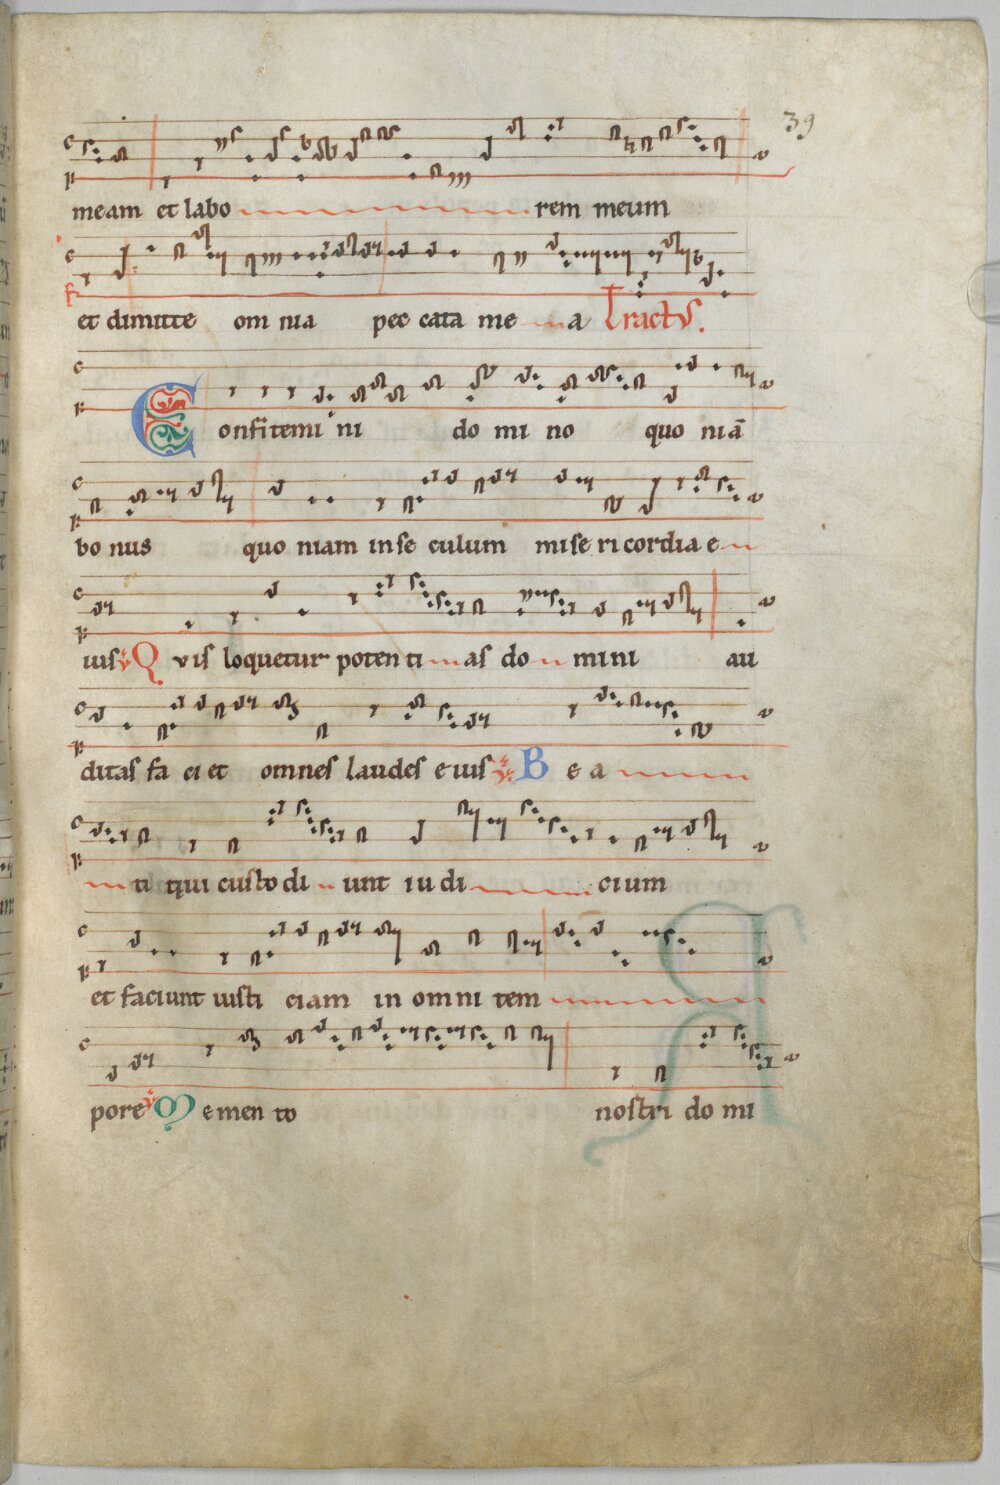 39
meam et labo rem meum
et dimitte om nia pec cata me a Tractus.
Confitemi ni do mi no quo niā
bo nus quo niam in se culum mise ri cordia e
ius Quis loquetur poten ti as do mini au
ditas fa ci et omnes laudes eius B e a
ti qui custo di unt iu di cium
et faciunt iusti ciam in omni tem
pore Memen to nostri do mi